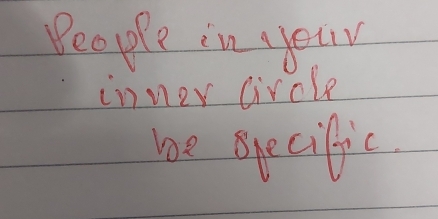 People in your
inner circle
be specific.